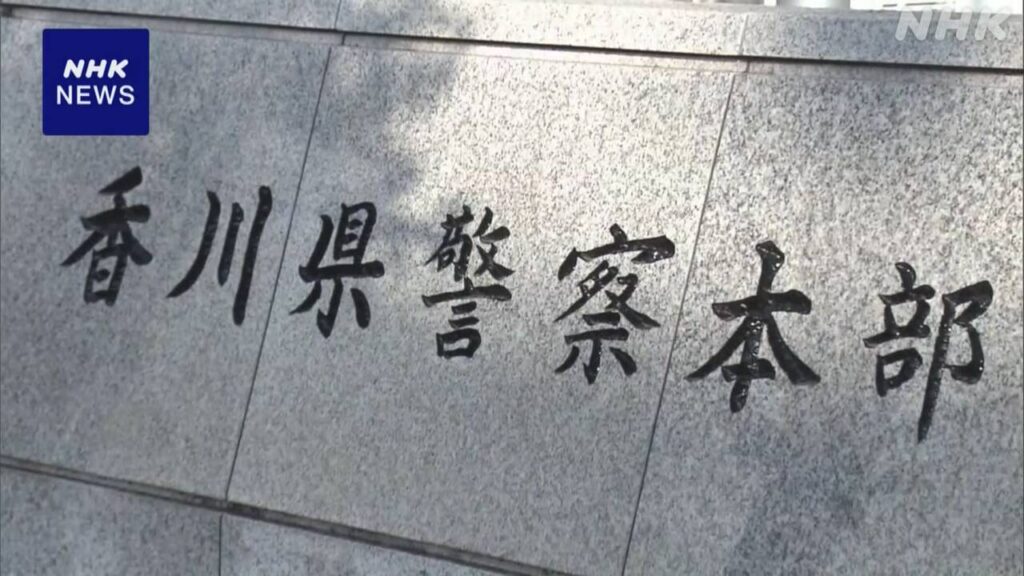 NHK
NHK
NEWS
香川県警察本部